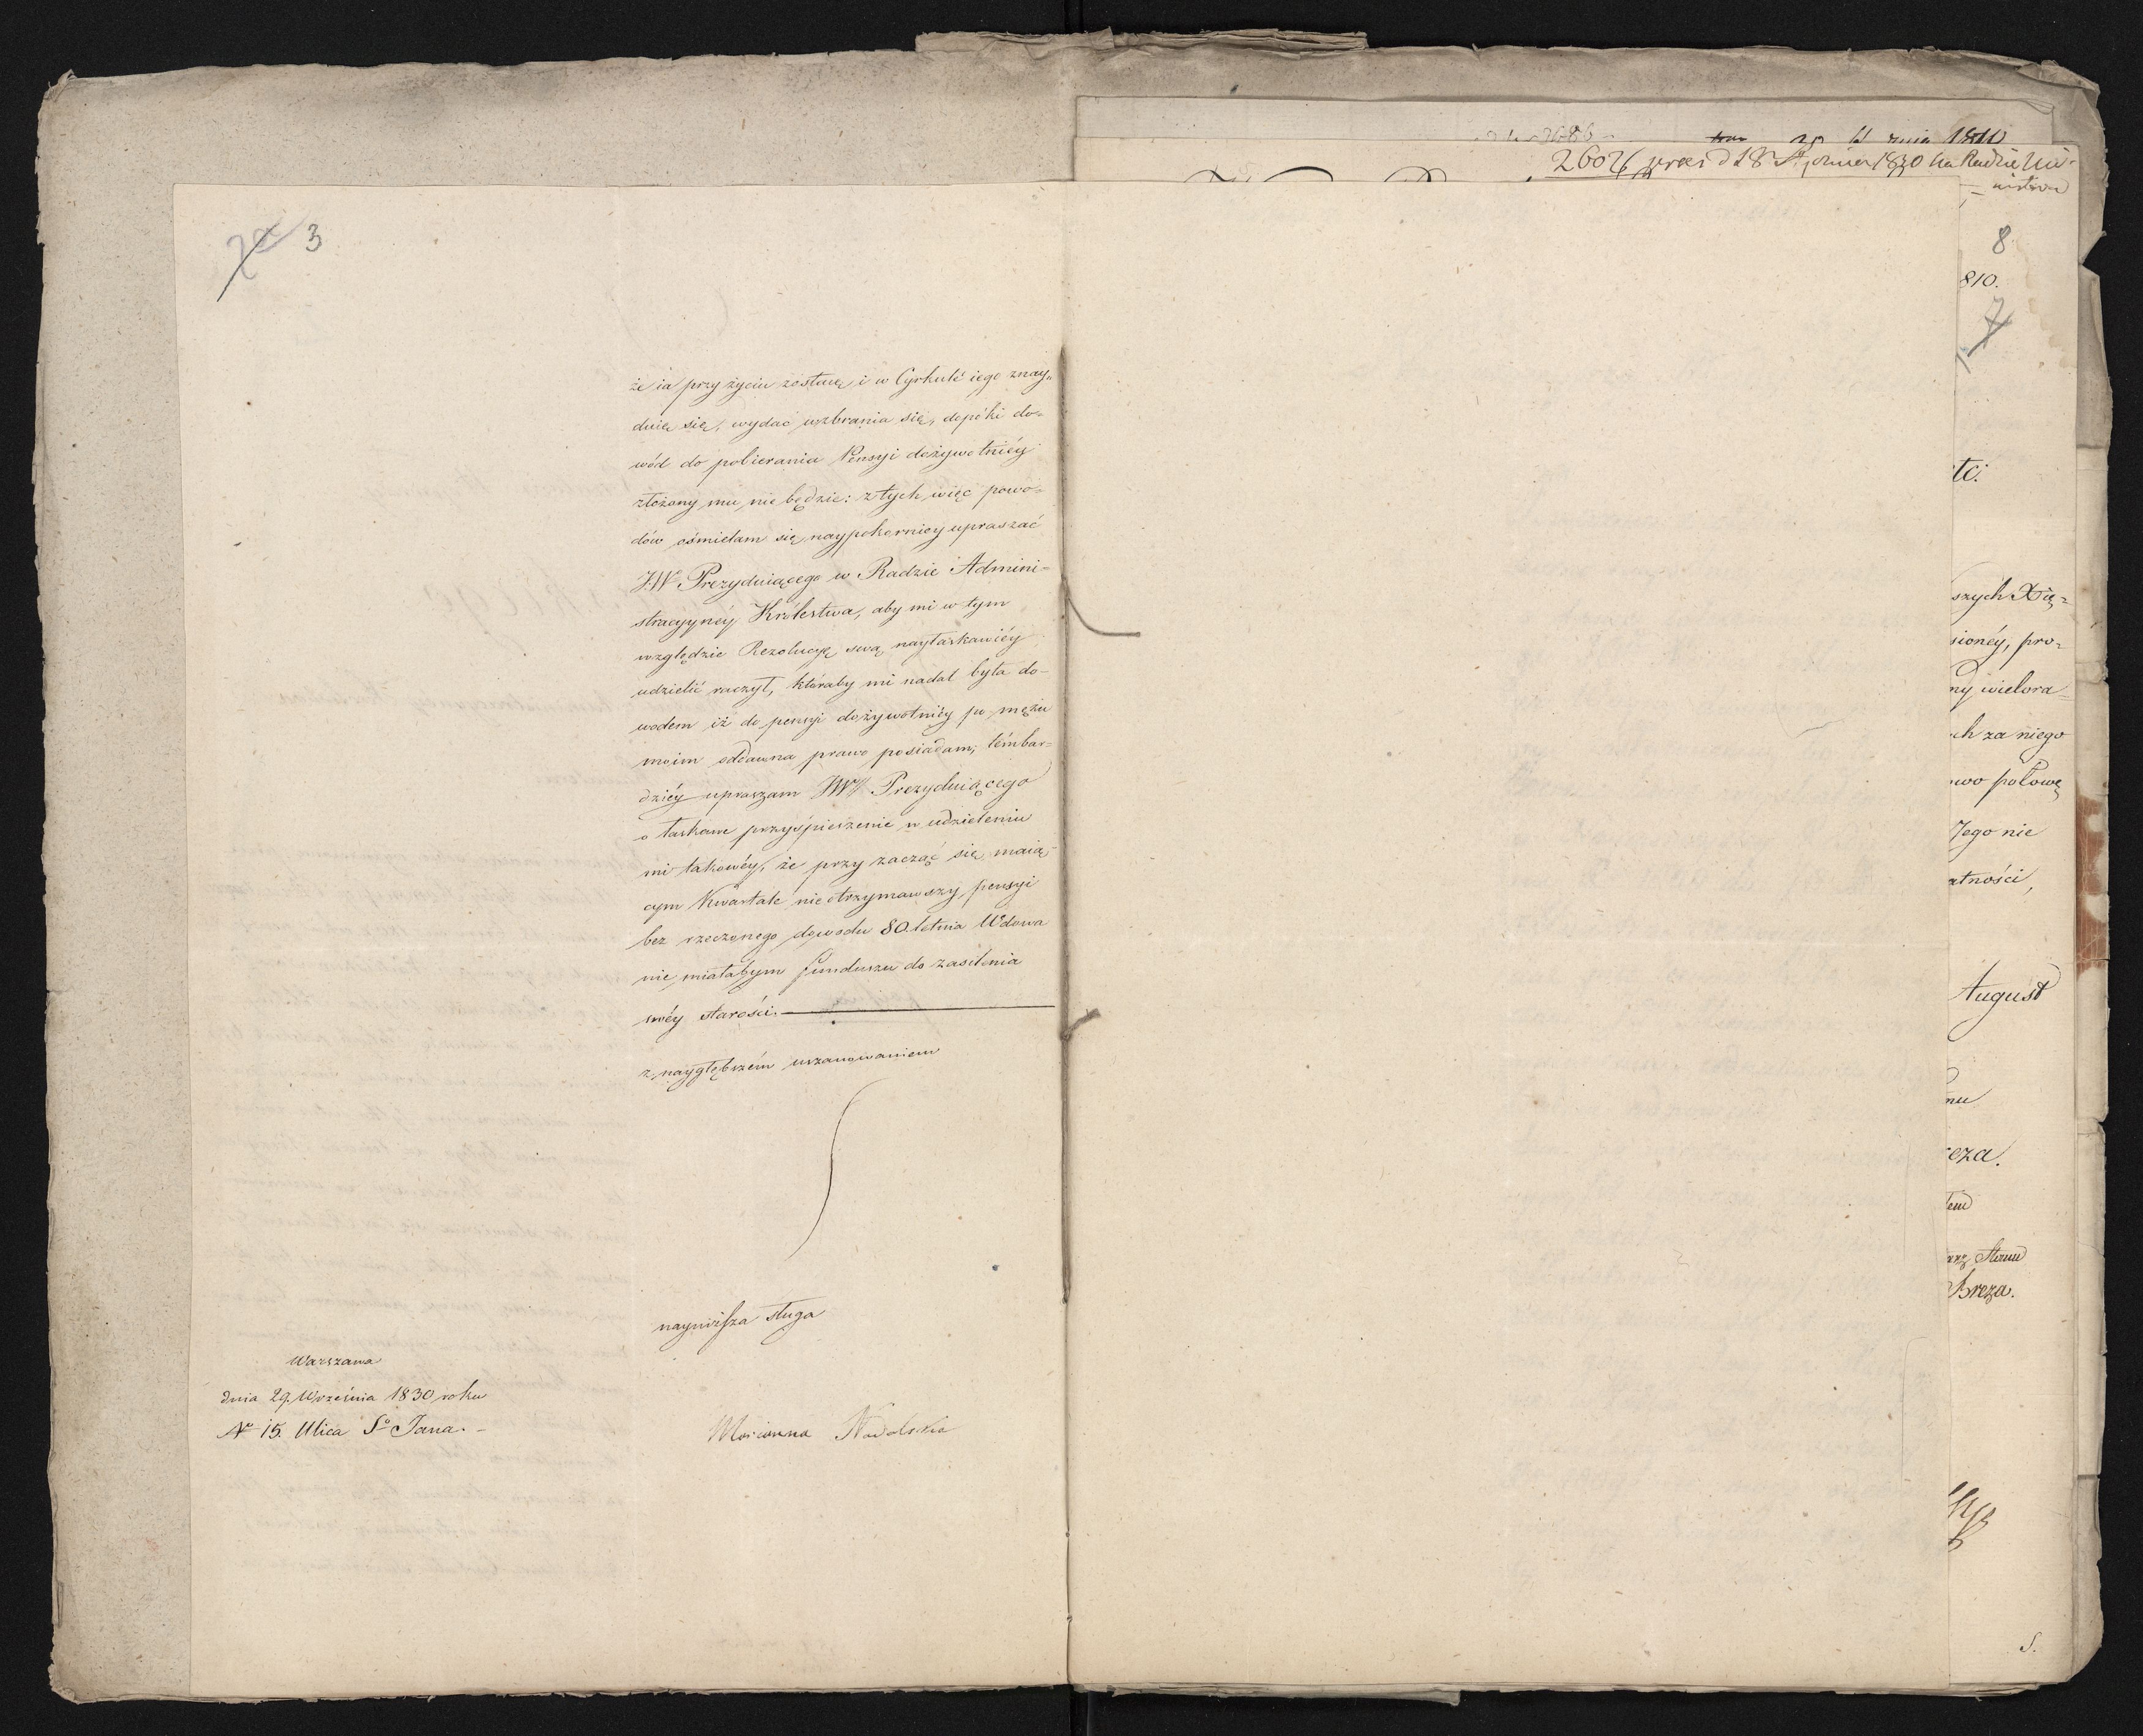 3
że ia przy życiu zostaię i w Cyrkule iego znay„
duię się, wydać wzbrania się, dopóki do=
wód do pobierania Pensyi dożywotniéy
złożony mu nie będzie: z tych więc powo=
dów ośmielam się naypokorniey upraszać
JW Prezyduiącego w Radzie Admini=
stracyynéy Królestwa, aby mi w tym
względzie Rezolucyę swą nayłaskawiéy
udzielić raczył, któraby mi nadal była do=
wodem iż do pensyi dożywotniéy po mężu
moim oddawna prawo posiadam; témbar=
dziéy upraszam JW Prezyduiącego
o łaskawe przyśpieszenie w udzieleniu
mi takowéy, że przy zacząć się maią=
cym Kwartale nie otrzymawszy pensyi
bez rzeczonego dowodu 80. letnia Wdowa
nie miałabym funduszu do zasilenia
swéy starości.
z naygłębszém uszanowaniem
nayniższa sługa
Warszawa
dnia 29. Września 1830 roku
No 15. Ulica So Jana. –
Maryanna Nadolska
2602
1830 na Radzie
8
810.
7
szych Xię=
sionéy, pro=
ny wielora=
ch za niego
wo połowę
Jego nie
atności,
August
mu
eza.
Stanu
Breza.
S.